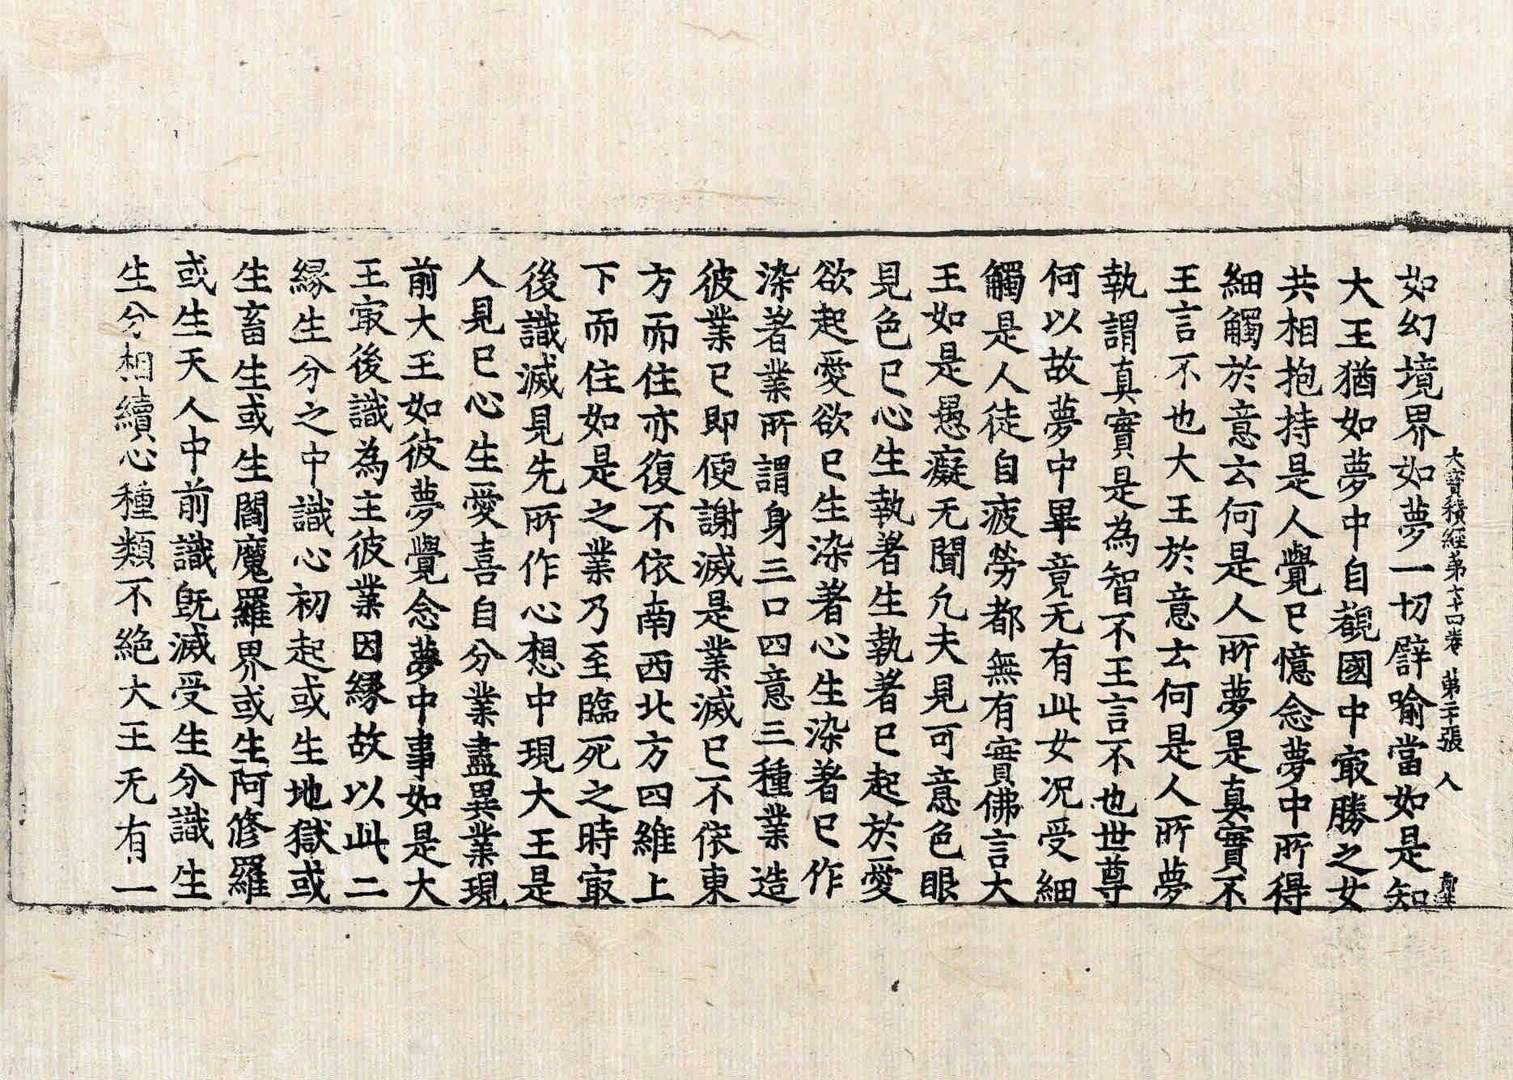 大寶積經第七十四卷　第二張　人
如幻境界如夢一切譬喻當如是知
大王猶如夢中自覩國中㝡勝之女
共相抱持是人覺已憶念夢中所得
細觸於意云何是人所夢是真實不
王言不也大王於意云何是人所夢
執謂真實是為智不王言不也世尊
何以故夢中畢竟无有此女况受細
觸是人徒自疲勞都無有實佛言大
王如是愚癡无聞凡夫見可意色眼
見色已心生執著生執著已起於愛
欲起愛欲已生染著心生染著已作
染著業所謂身三口四意三種業造
彼業已即便謝滅是業滅已不依東
方而住亦復不依南西北方四維上
下而住如是之業乃至臨死之時㝡
後識滅見先所作心想中現大王是
人見已心生愛喜自分業盡異業現
前大王如彼夢覺念夢中事如是大
王㝡後識為主彼業因緣故以此二
緣生分之中識心初起或生地獄或
生畜生或生閻魔羅界或生阿修羅
或生天人中前識旣滅受生分識生
生分相續心種類不絕大王无有一